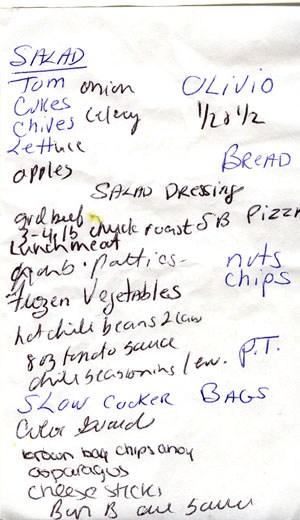 SALAD
Tom onion OLIVIO
Cukes Celery 1/2 & 1/2
Chives
Lettuce
apples BREAD
SALAD Dressing
grd beef
3-4 lb chuck roast SB Pizza
Lunchmeat
patties nuts
frozen Vegetables chips
hot chili beans 2 can
8oz tomato sauce P.T.
chili seasoning 1 env.
SLOW COCKER BAGS
Color Guard
brown bag chips ahoy
asparagus
cheese sticks
B sauce